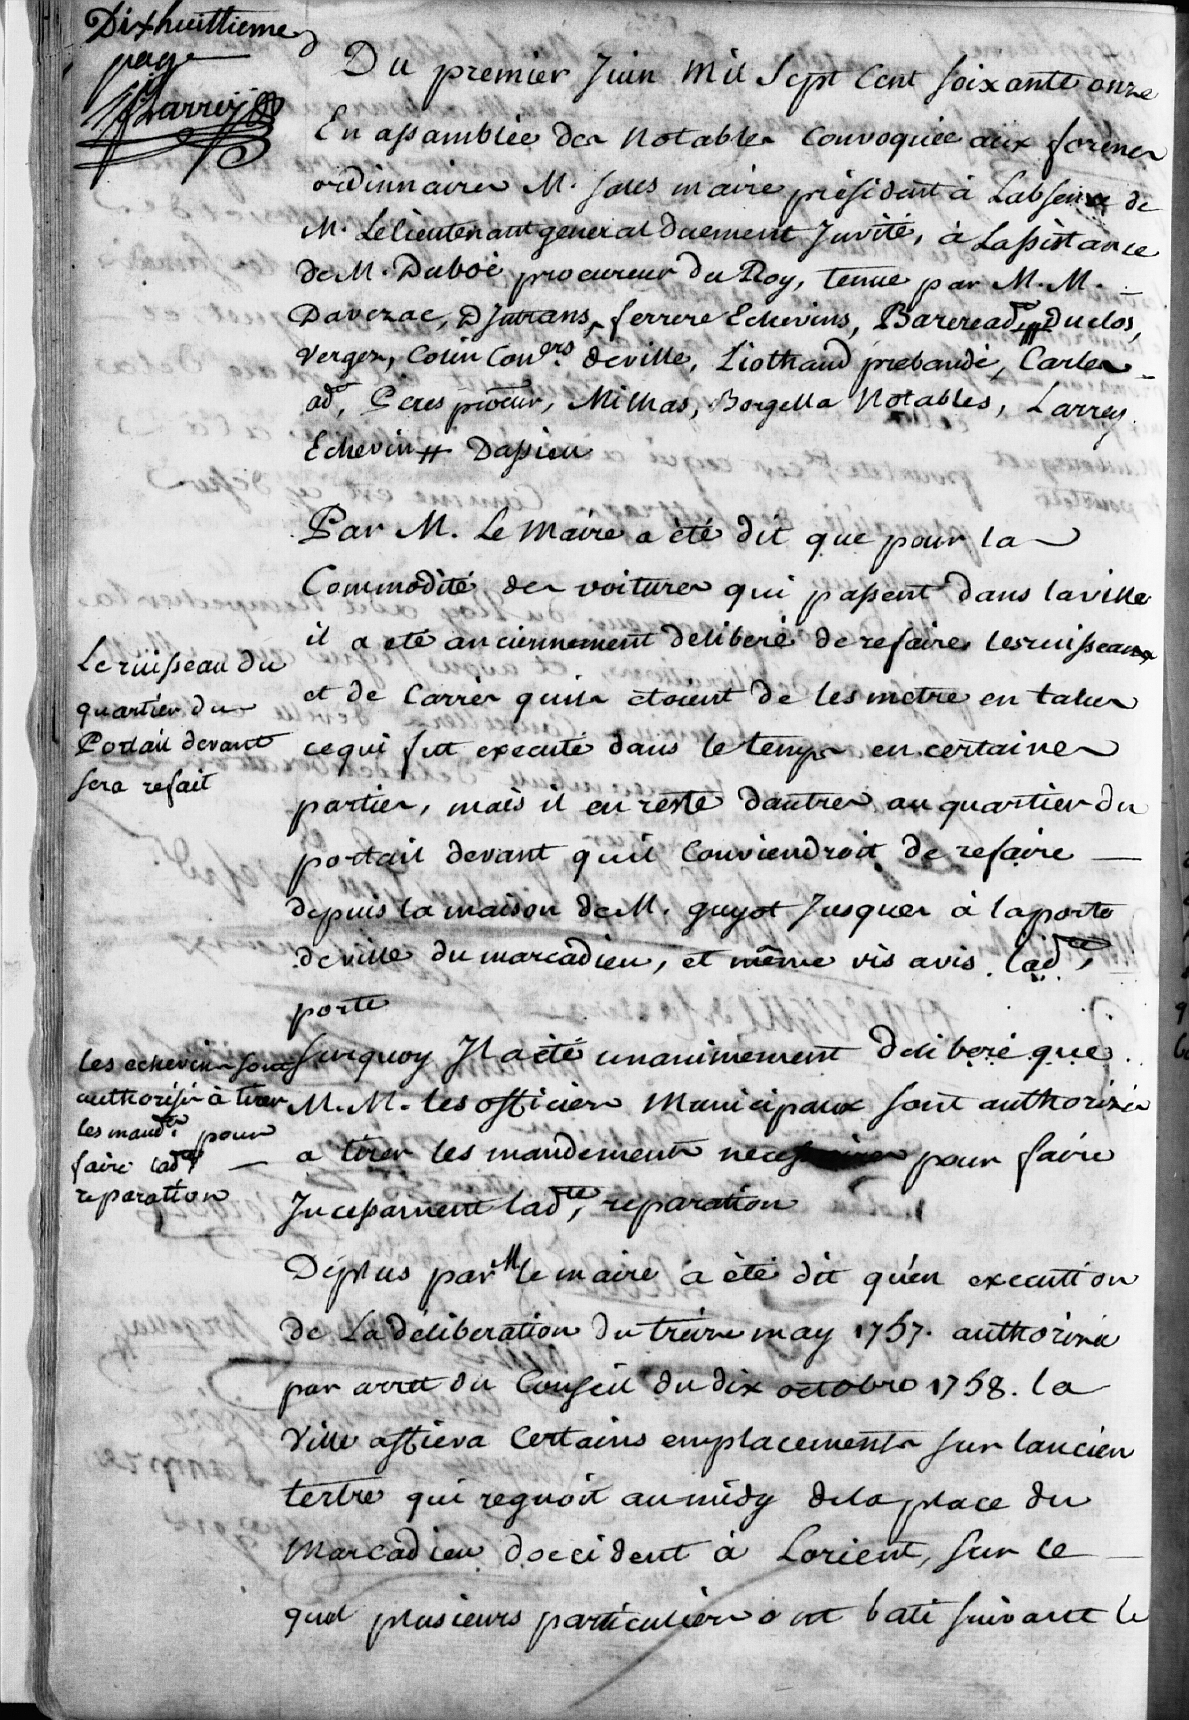 Dixhuittieme
page
Larrey
Du premier Juin mil Sept Cent Soixante onze
En assamblée des Notables Convoquée aux formes
ordinnaires M. Sales maire président à Labsence de
M. Le lieutenant general duement Invité, à Lassistance
de M. Duboé procureur du Roy, tenue par M. M.
Davezac, Djutrans, ferrere Echevins, Barere adt, Duclos,
Verges, Colin Coners deville, Liothaud prebandé, Carles
adt, Peres procur, Milhas, Borgella Notables, Larrey
Echevin # Dassieu
Par M. Le Maire a été dit que pour la
Commodité des voitures qui passent dans laville
il a eté anciennement deliberé de refaire les ruisseaux
et de Carrés quils etoient de les metre en talus
cequi fut executé dans le temps en certaines
parties, mais il en reste dautres au quartier du
portail devant quil Conviendroit de refaire
depuis la maison de M. guyot Jusques à laporte
deville du marcadieu, et même vis avis ladte
porte
Le ruisseau du
quartier du
Portail devant
sera refait
Surquoy Il a été unanimement deliberé que
M. M. les officiers Municipaux sont authorizés
a tirer les mandements necessaires pour faire
Incessament ladte, reparation
les echevins sont
authorisés à tirer
les mandts pour
faire ladte
reparation
Déplus par M le maire a été dit qu'en execution
de La déliberation du treize may 1757. authorizée
par arret du Conseil du dix octobre 1758. la
Ville affieva Certains emplacements sur lancien
tertre qui regnoit au midy dela place du
Marcadieu doccident à Lorient, sur le
quel plusieurs particuliers ont bati suivant le